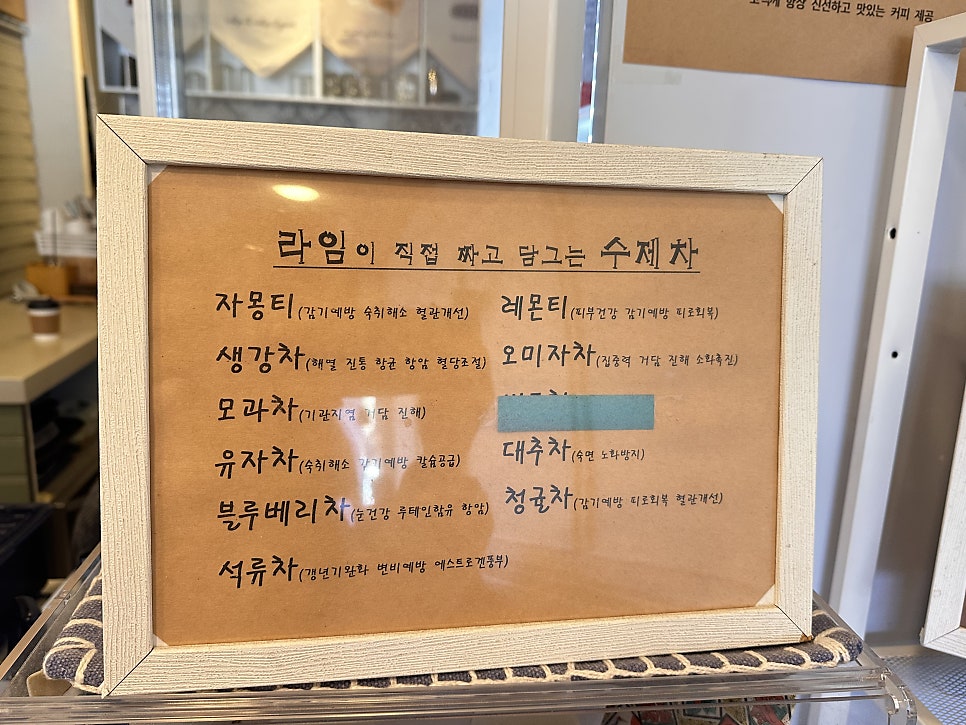 고객께 항상 신선하고 맛있는 커피 제공
라임이 직접 짜고 담그는 수제차
자몽티(감기예방 숙취해소 혈관개선)
생강차(해열 진통 항균 항암 혈당조절)
모과차(기관지염 거담 진해)
유자차(숙취해소 감기예방 칼슘공급)
블루베리차(눈건강 루테인함유 항암)
석류차(갱년기완화 변비예방 에스트로겐풍부)
레몬티(피부건강 감기예방 피로회복)
오미자차(집중력 거담 진해 소화촉진)
대추차(숙면 노화방지)
청귤차(감기예방 피로회복 혈관개선)